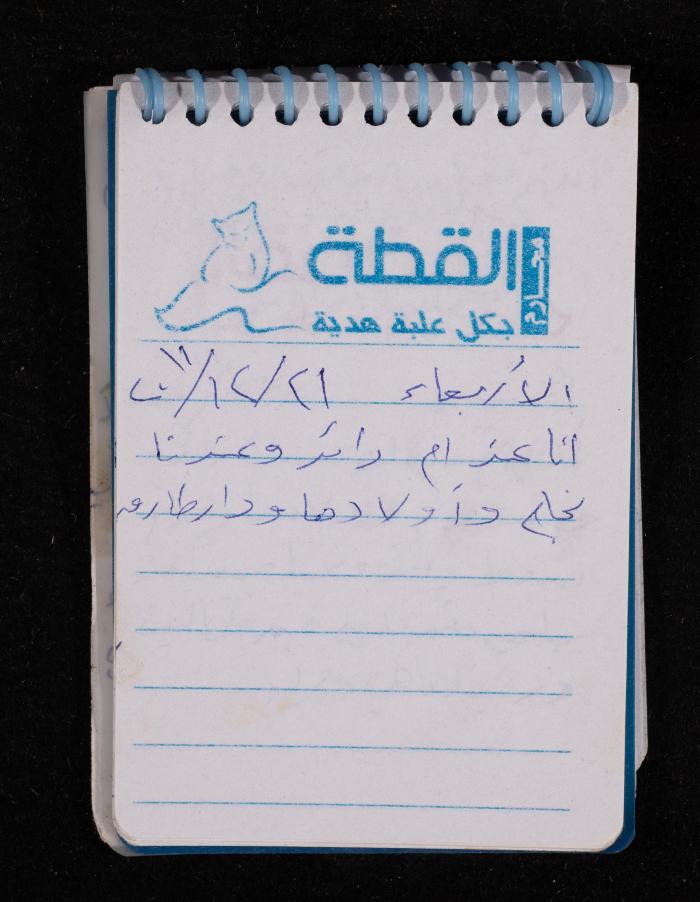 محارم
القطة
بكل علبة هدية
الأربعاء ٢١/١٢/١١ ت
انا عند ام رائد وعندنا
نجاح وأولادها ودار طارق